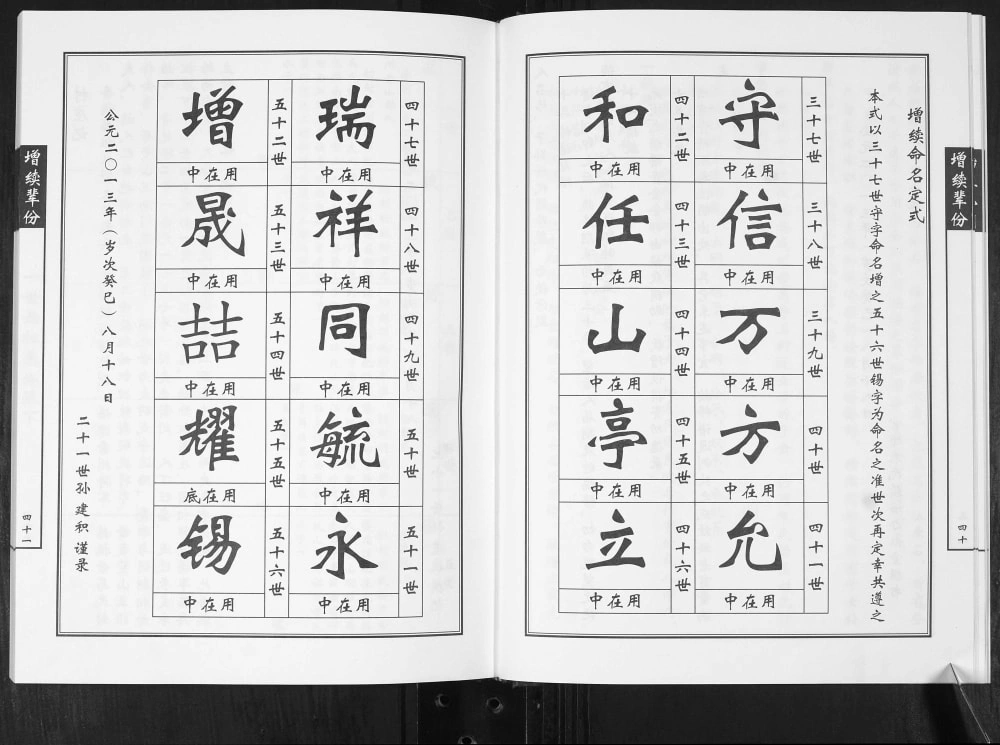 增续命名定式
本式以三十七世守字命名增之五十六世锡字为命名之准世次再定幸共遵之
三十七世
守
中在用
三十八世
信
中在用
三十九世
万
中在用
四十世
方
中在用
四十一世
允
中在用
四十二世
和
中在用
四十三世
任
中在用
四十四世
山
中在用
四十五世
亭
中在用
四十六世
立
中在用
增续辈份
四十
四十七世
瑞
中在用
四十八世
祥
中在用
四十九世
同
中在用
五十世
毓
中在用
五十一世
永
中在用
五十二世
增
中在用
五十三世
晟
中在用
五十四世
喆
中在用
五十五世
耀
底在用
五十六世
锡
中在用
公元二〇一三年（岁次癸巳）八月十八日
二十一世孙 建积 谨录
增续辈份
四十一